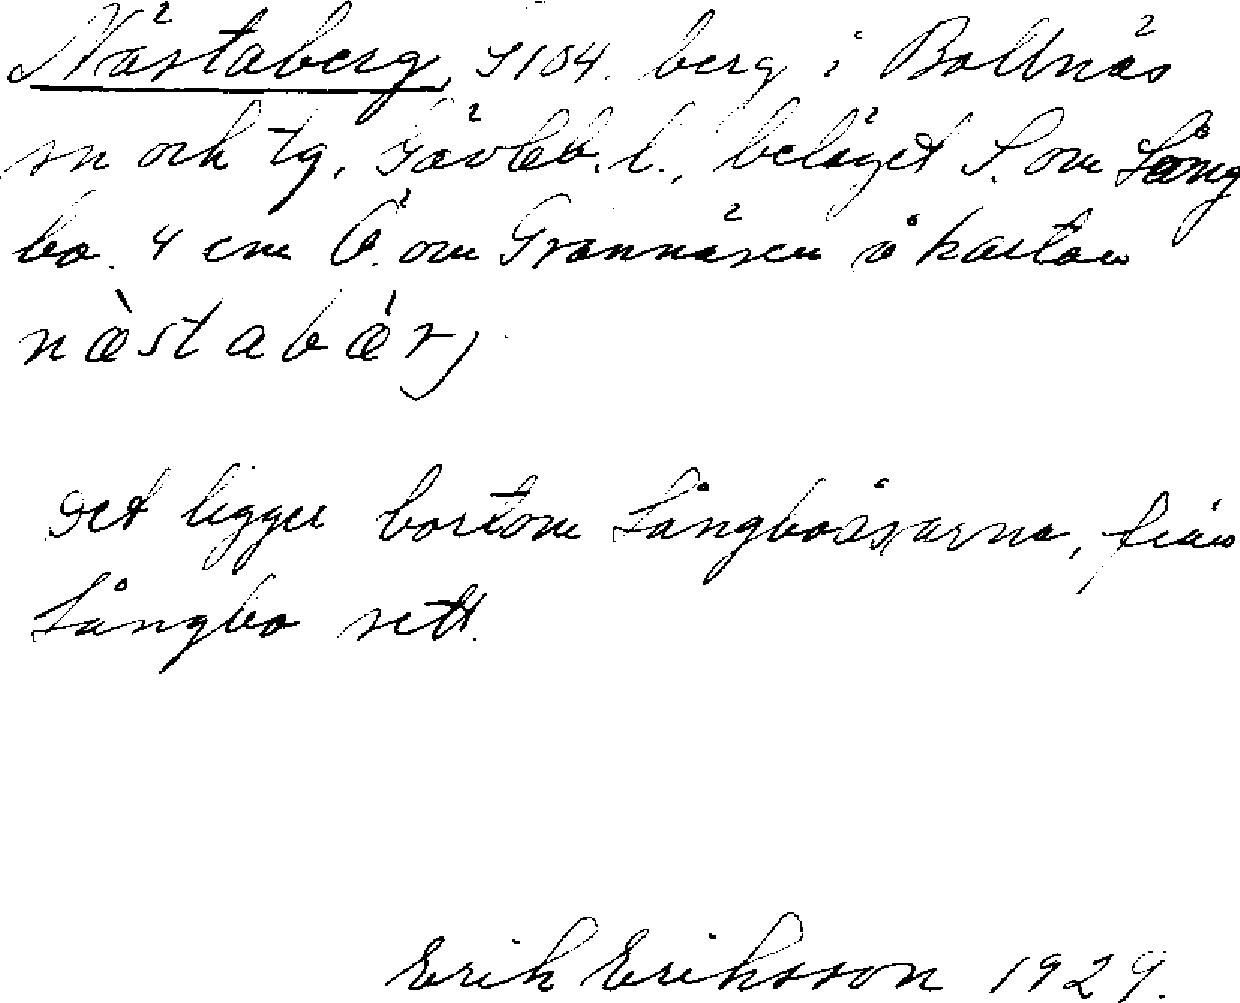 Nästaberg, S104. berg i Bollnäs
sn och tg, Gävleb. l., beläget S. om Lång
bo. 4 cm Ö. om Grannäsen å kartan
næ̀stabǽrj
Det ligger bortom Långboåsarna, från
Långbo sett.
Erik Eriksson 1929.